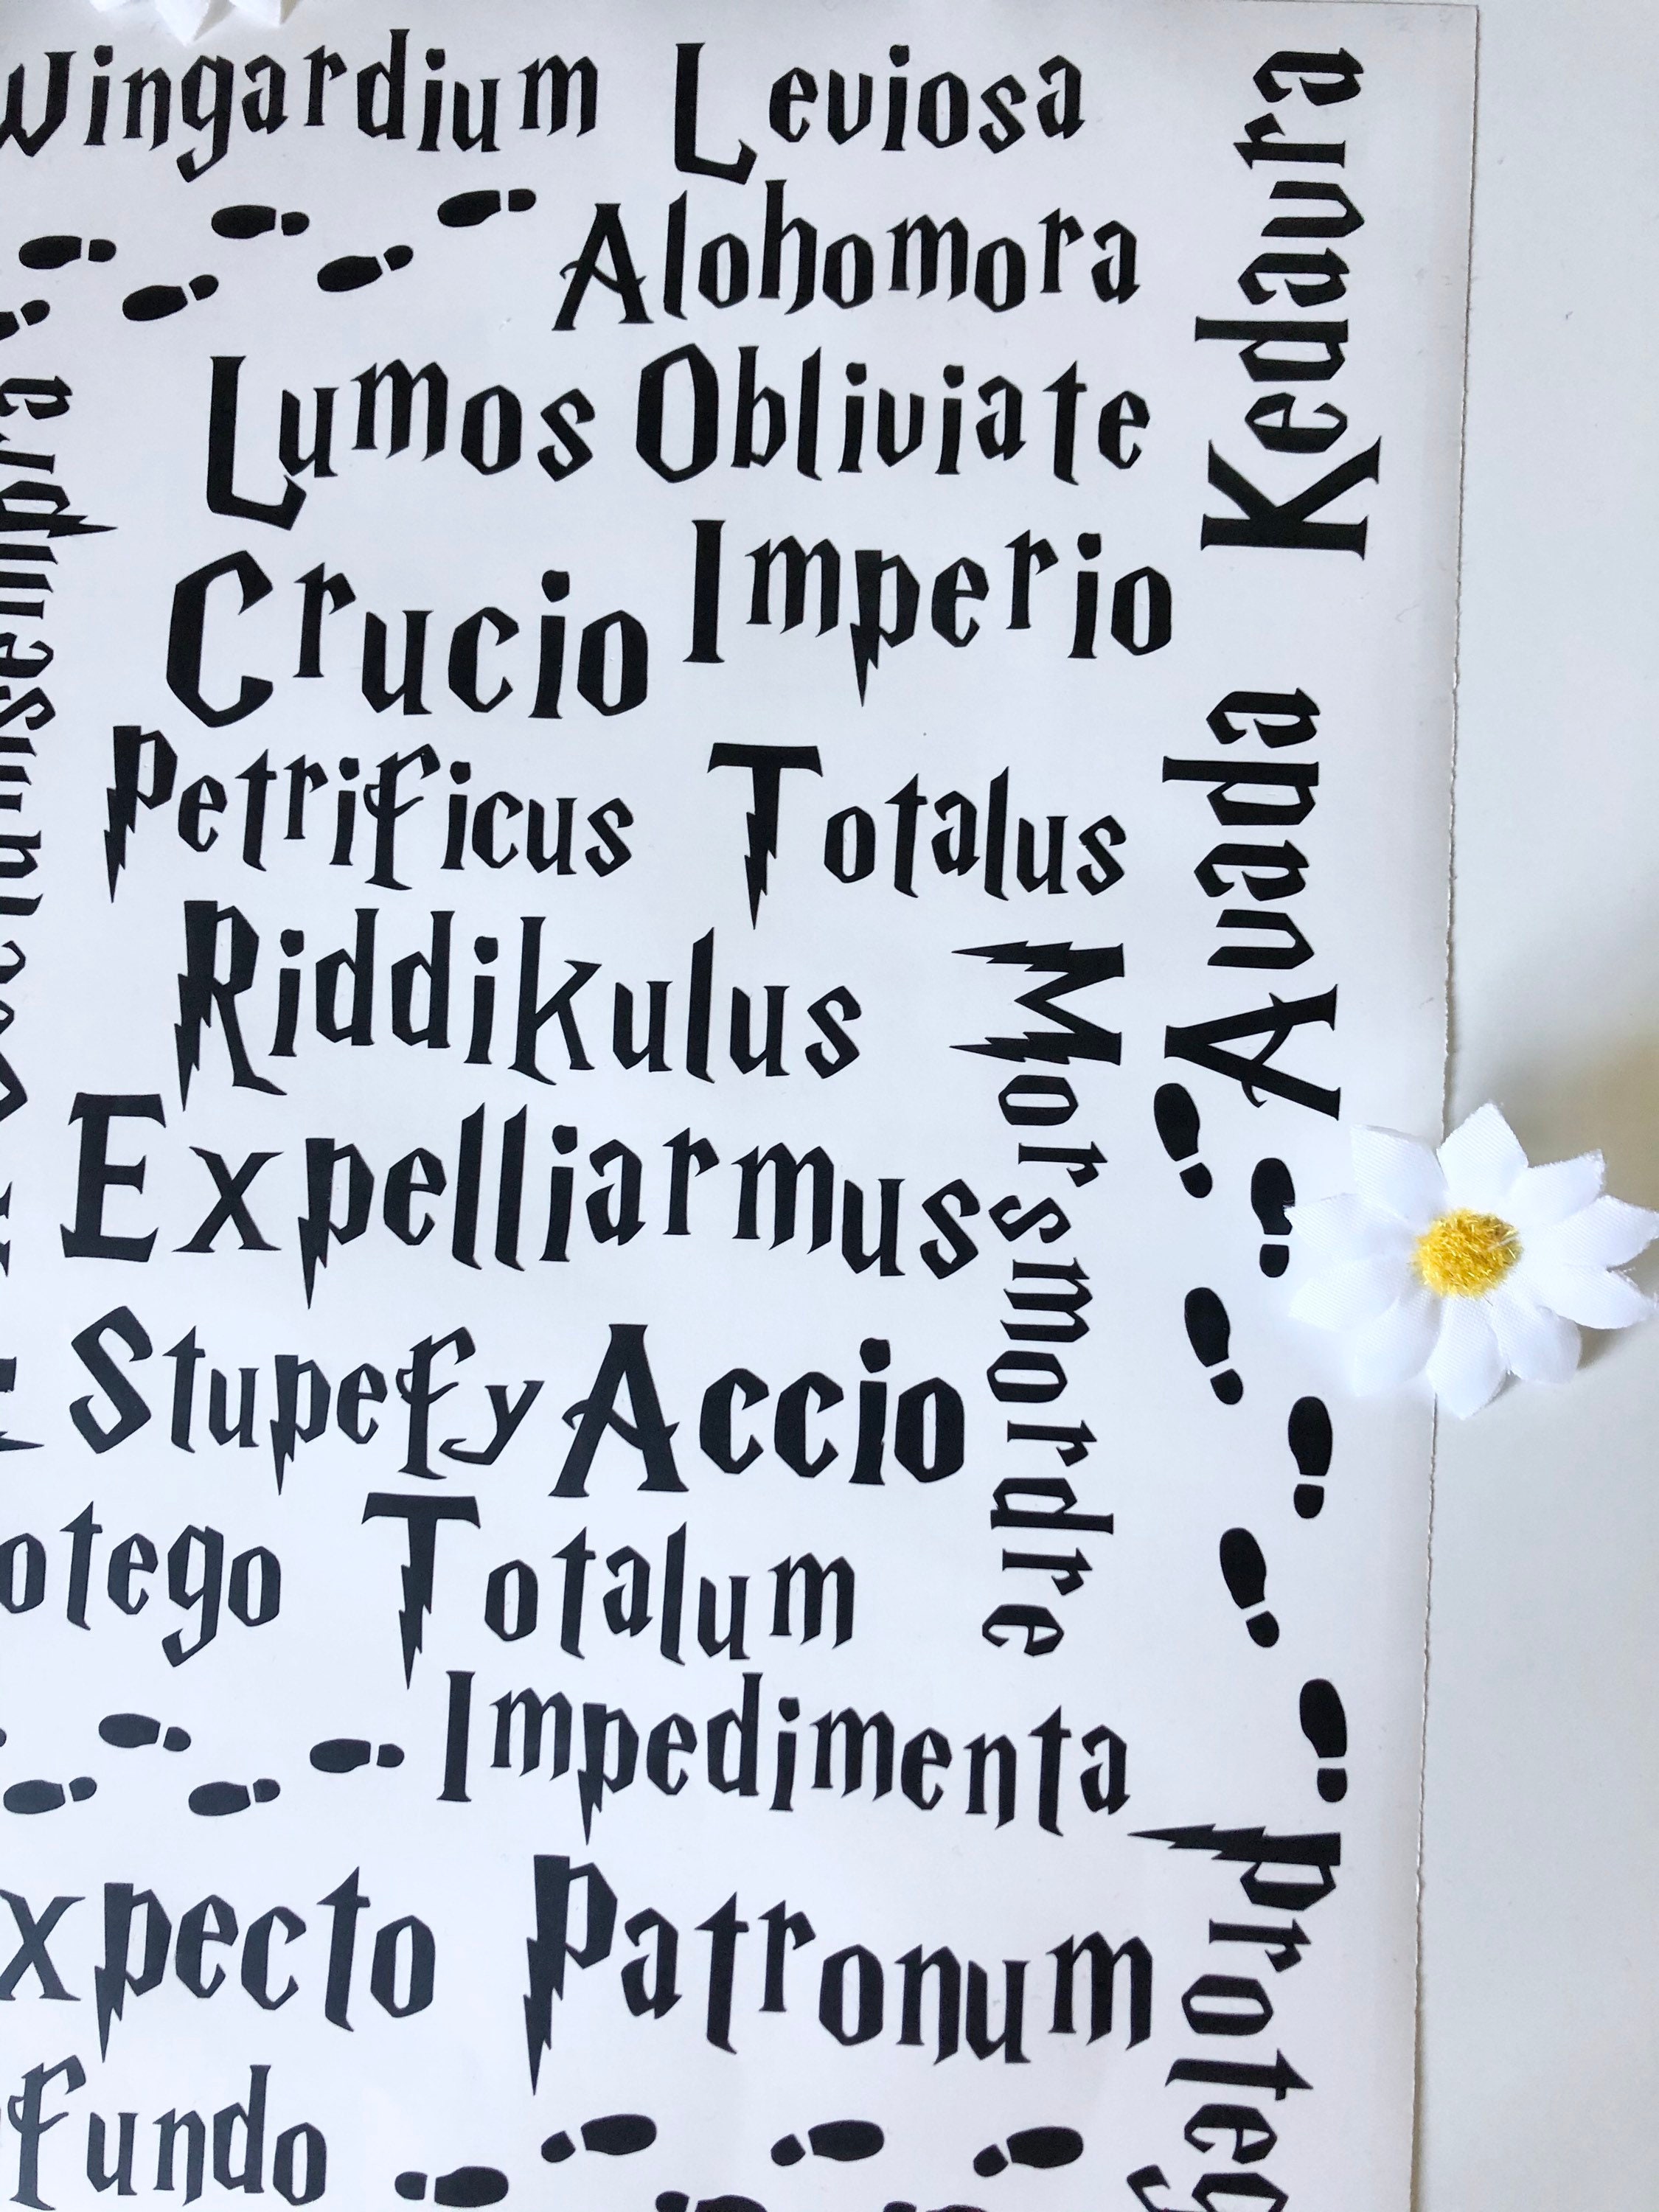 Wingardium Leviosa
Alohomora
Lumos Obliviate
Crucio Imperio
Petrificus Totalus
Riddikulus
Expelliarmus
Stupefy Accio
otego Totalum
Impedimenta
xpecto Patronum
fundo
Avada Kedavra
Morsmordre
Proteg